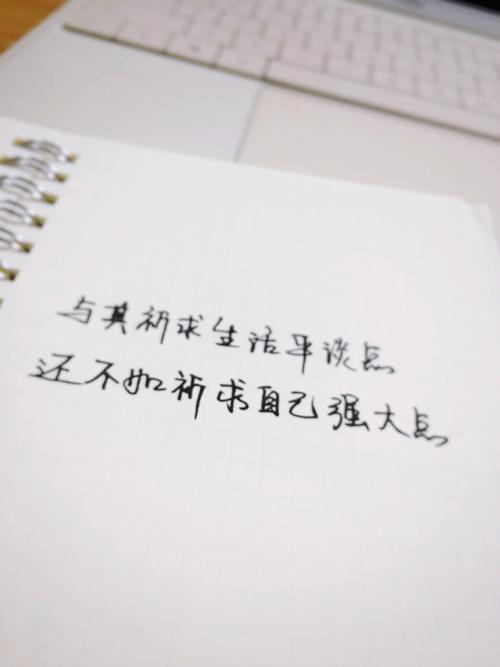 与其祈求生活平谈点
还不如祈求自己强大点